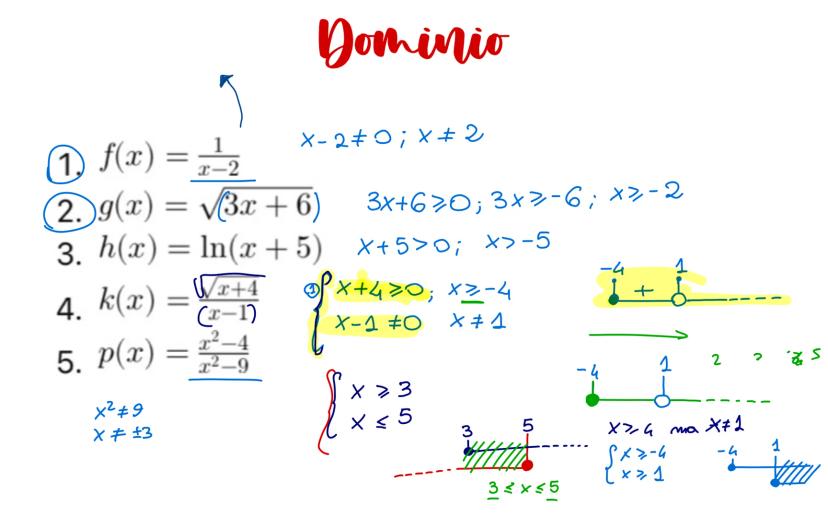 Dominio
1. f(x) = 1/(x−2)   x-2≠0; x≠2
2. g(x) = √(3x + 6)   3x+6⩾0; 3x⩾-6; x⩾-2
3. h(x) = ln(x + 5)   x+5>0; x>-5
4. k(x) = √(x+4)/(x−1)   ① { x+4⩾0; x⩾-4
x-1≠0   x≠1
-4   1
+
5. p(x) = (x²−4)/(x²−9)
x²≠9
x≠±3
{ x⩾3
x≤5
3   5
3≤x≤5
-4   1   2   5
x⩾4 ma x≠1
{ x⩾-4
x⩾1
-4   1